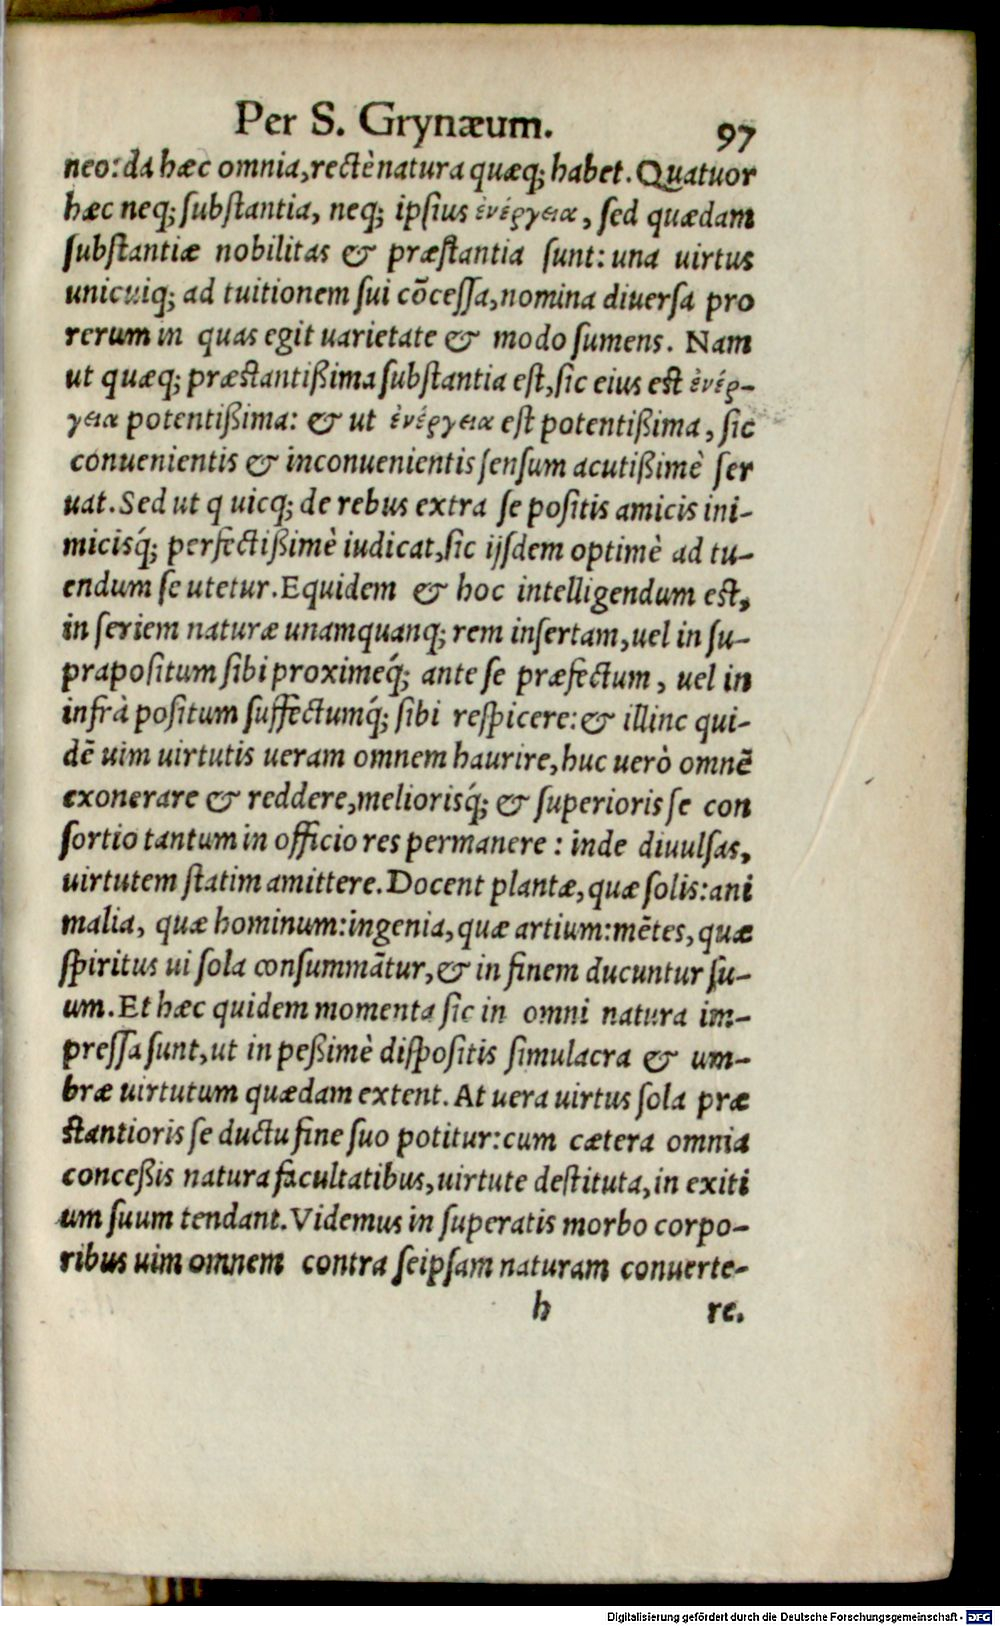 Per S. Grynæum. 97
neo: da hæc omnia, rectè natura quæq; habet. Quatuor
hæc neq; substantia, neq; ipsius ἐνέργεια, sed quædam
substantiæ nobilitas & præstantia sunt: una uirtus
unicuiq; ad tuitionem sui cõcessa, nomina diuersa pro
rerum in quas egit uarietate & modo sumens. Nam
ut quæq; præstantißima substantia est, sic eius est ἐνέρ-
γεια potentißima: & ut ἐνέργεια est potentißima, sic
conuenientis & inconuenientis sensum acutißimè ser
uat. Sed ut q uicq; de rebus extra se positis amicis ini-
micisq́; perfectißimè iudicat, sic ijsdem optimè ad tu-
endum se utetur. Equidem & hoc intelligendum est,
in seriem naturæ unamquanq; rem insertam, uel in su-
prapositum sibi proximeq́; ante se præfectum, uel in
infrà positum suffectumq́; sibi respicere: & illinc qui-
dẽ uim uirtutis ueram omnem haurire, huc uerò omnẽ
exonerare & reddere, meliorisq́; & superioris se con
sortio tantum in officio res permanere : inde diuulsas,
uirtutem statim amittere. Docent plantæ, quæ solis: ani
malia, quæ hominum: ingenia, quæ artium: mẽtes, quæ
spiritus ui sola consummãtur, & in finem ducuntur su-
um. Et hæc quidem momenta sic in omni natura im-
pressa sunt, ut in peßimè dispositis simulacra & um-
bræ uirtutum quædam extent. At uera uirtus sola præ
stantioris se ductu fine suo potitur: cum cætera omnia
conceßis natura facultatibus, uirtute destituta, in exiti
um suum tendant. Videmus in superatis morbo corpo-
ribus uim omnem contra seipsam naturam conuerte-
h re.
Digitalisierung gefördert durch die Deutsche Forschungsgemeinschaft - DFG